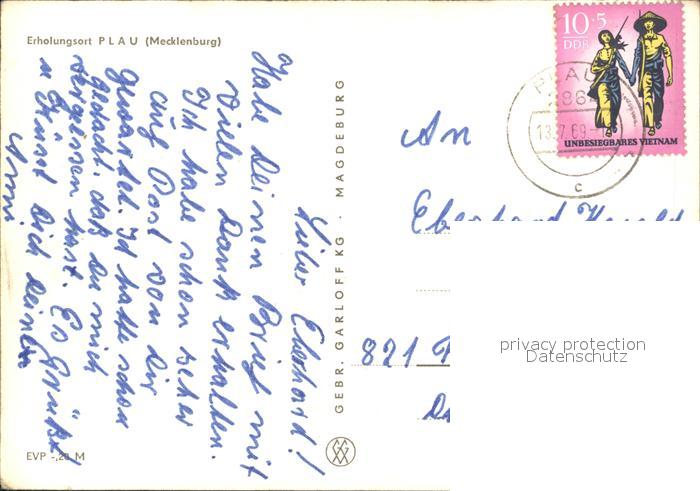 Erholungsort PLAU (Mecklenburg)
Lieber Eberhard!
Habe Deinen Brief mit
vielen Dank erhalten.
Ich habe schon sehr
auf Post von Dir
gewartet. Ich hatte schon
gedacht, daß du mich
vergessen hast. Es grüßt
u. küsst Dich Deine
EVP -,20 M
GEBR. GARLOFF KG · MAGDEBURG
10+5
DDR
UNBESIEGBARES VIETNAM
PLAU
286
13.7.69
c
An
Eberhard
821
privacy protection
Datenschutz